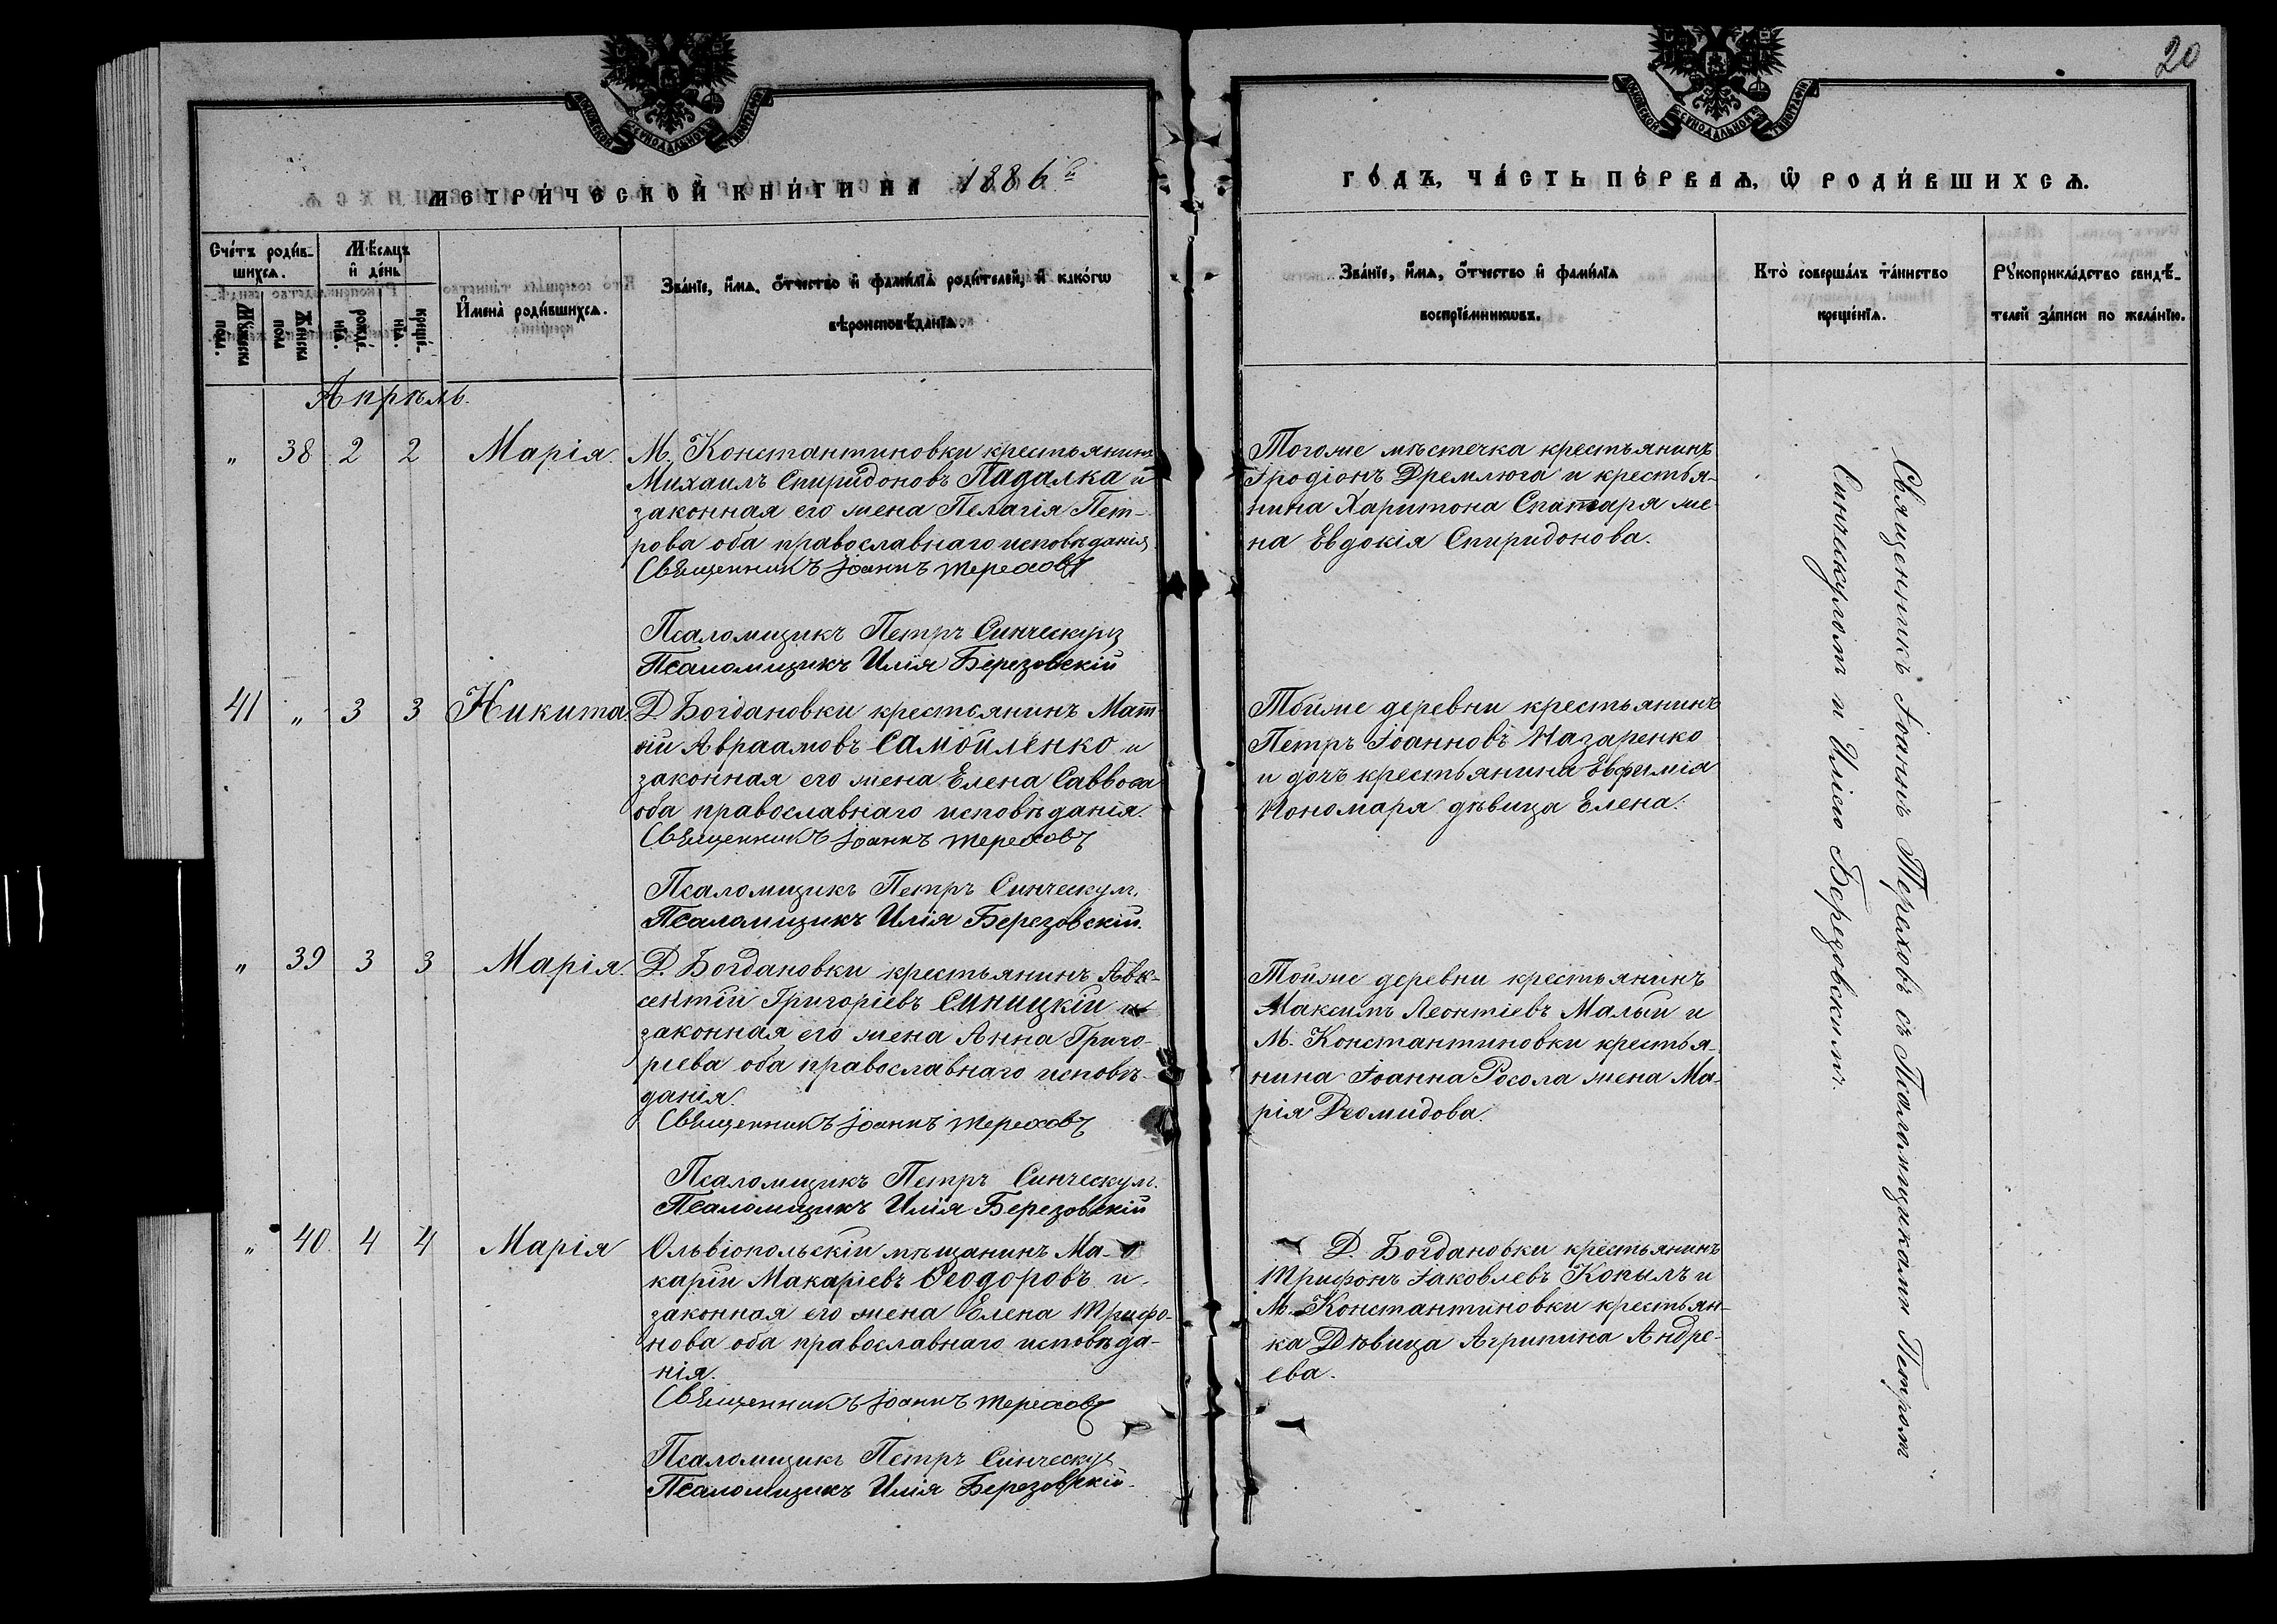 20
МОСКОВСКОЙ СѴНОДАЛЬНОЙ ТИПОГРАФІИ
МОСКОВСКОЙ СѴНОДАЛЬНОЙ ТИПОГРАФІИ
МЕТРИ́ЧЕСКОЙ КНИ́ГИ НА 1886й
ГО́ДЪ, ЧА́СТЬ ПЕ́РВАѦ, Ѡ҆ РОДИ́ВШИХСѦ.
Сче́тъ роди́в-
шихсѧ.
Мꙋжеска по́ла.
Же́нска пола
Мѣ́сѧцъ
и҆ де́нь
рожде́-
нїѧ.
креще́-
нїѧ.
И҆мена̀ роди́вшихсѧ.
Зва́нїе, и҆́мѧ, ѻ҆́тчество и҆ фами́лїѧ роди́телей, и҆ како́гѡ
вѣроисповѣ́данїѧ.
Зва́нїе, и҆́мѧ, ѻ҆́тчество и҆ фами́лїѧ
воспрїе́мникѡвъ.
Кто̀ соверша́лъ та́инство
креще́нїѧ.
Рꙋкоприкла́дство свидѣ́-
телей за́писи по жела́нїю.
Апрѣль.
„ 38 2 2 Марія.
М. Константиновки крестьянинъ
Михаилъ Спиридоновъ Падалка и
законная его жена Пелагія Пет-
рова оба православнаго исповѣданія
Священникъ Іоаннъ Тереховъ
Псаломщикъ Петръ Синческулъ
Псаломщикъ Илія Березовскій
Тогоже мѣстечка крестьянинъ
Іродіонъ Дремлюга и крестья-
нина Харитона Спатаря же-
на Евдокія Спиридонова.
41 „ 3 3 Никита.
Д. Богдановки крестьянинъ Мат-
ѳій Авраамовъ Самойленко и
законная его жена Елена Саввова
оба православнаго исповѣданія.
Священникъ Іоаннъ Тереховъ
Псаломщикъ Петръ Синческулъ
Псаломщикъ Илія Березовскій.
Тойже деревни крестьянинъ
Петръ Іоанновъ Назаренко
и дочь крестьянина Евфимія
Пономаря дѣвица Елена.
„ 39 3 3 Марія.
Д. Богдановки крестьянинъ Авк-
сентій Григоріевъ Синицкій и
законная его жена Анна Григо-
рьева оба православнаго исповѣ-
данія.
Священникъ Іоаннъ Тереховъ
Псаломщикъ Петръ Синческулъ
Псаломщикъ Илія Березовскій
Тойже деревни крестьянинъ
Максимъ Леонтіевъ Малый и
М. Константиновки крестья-
нина Іоанна Росола жена Ма-
рія Діомидова.
„ 40 4 4 Марія
Ольвіопольскій мѣщанинъ Ма-
карій Макаріевъ Ѳеодоровъ и
законная его жена Елена Трифо-
нова оба православнаго исповѣда-
нія.
Священникъ Іоаннъ Тереховъ
Псаломщикъ Петръ Синческулъ
Псаломщикъ Илія Березовскій.
Д. Богдановки крестьянинъ
Трифонъ Іаковлевъ Копылъ и
М. Константиновки крестьян-
ка Дѣвица Агрипина Андре-
ева.
Священникъ Іоаннъ Тереховъ съ Псаломщиками Петромъ
Синческуломъ и Иліею Березовскимъ.